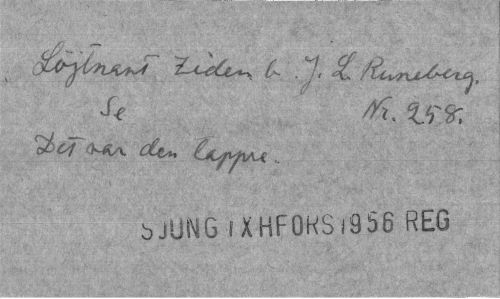 Löjtnant Ziden b. J. L. Runeberg.
Se Nr. 258.
Det var den tappre.
SJUNG IXHFORS 1956 REG